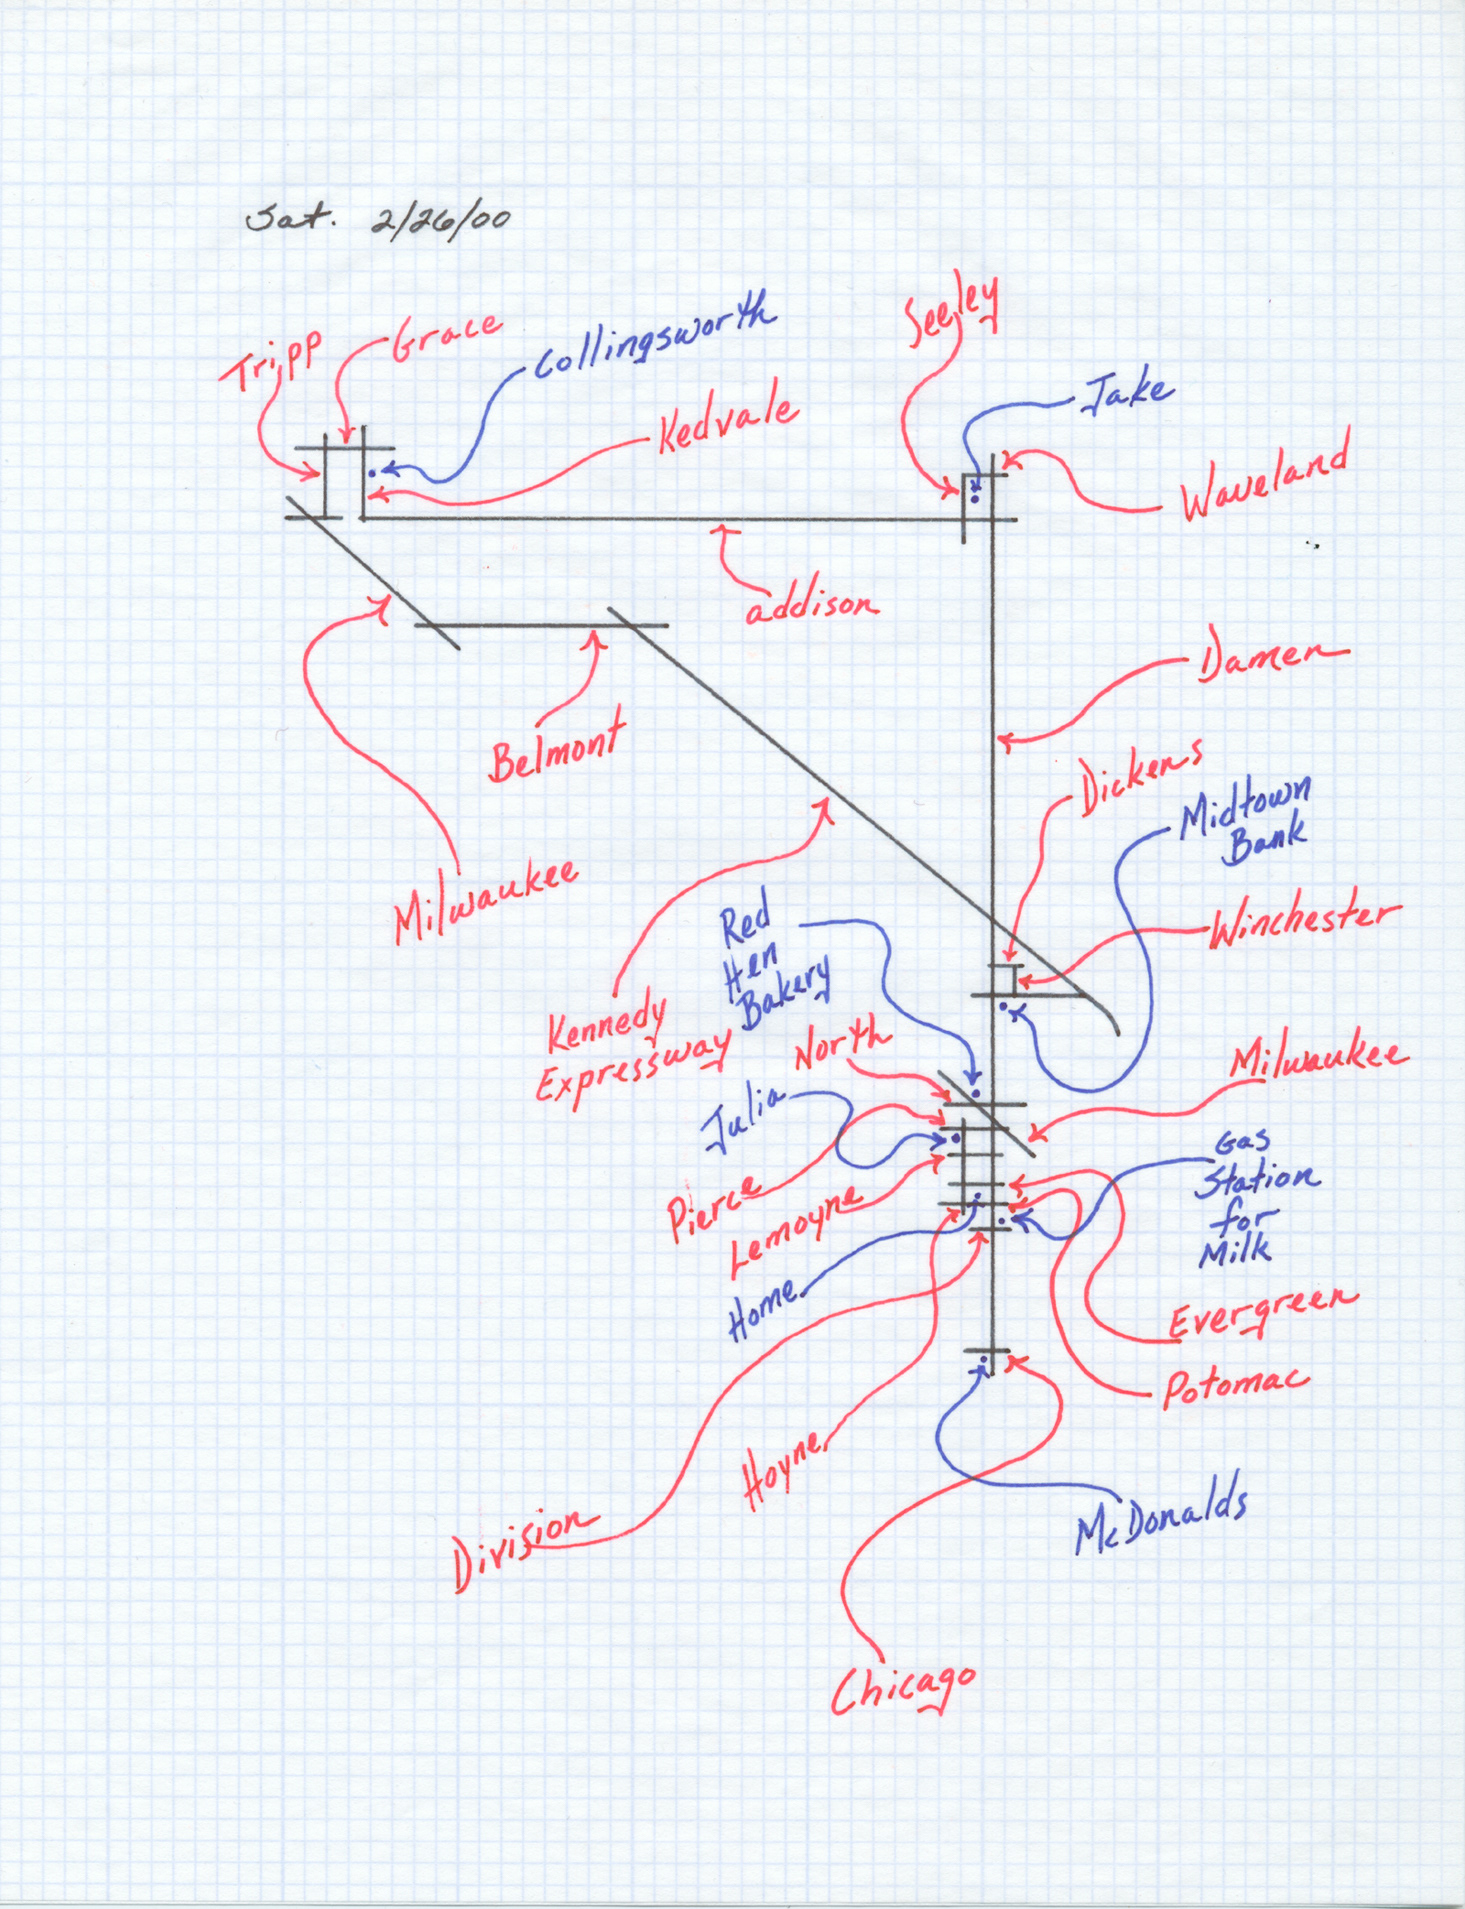 Sat. 2/26/00
Seeley
Tripp
Grace
Collingsworth
Jake
Kedvale
Waveland
addison
Damen
Belmont
Dickens
Midtown
Bank
Milwaukee
Winchester
Red
Hen
Bakery
Kennedy
Expressway
North
Milwaukee
Julia
Gas
Station
for
Milk
Pierce
Lemoyne
Home
Evergreen
Potomac
Hoyne
McDonalds
Division
Chicago